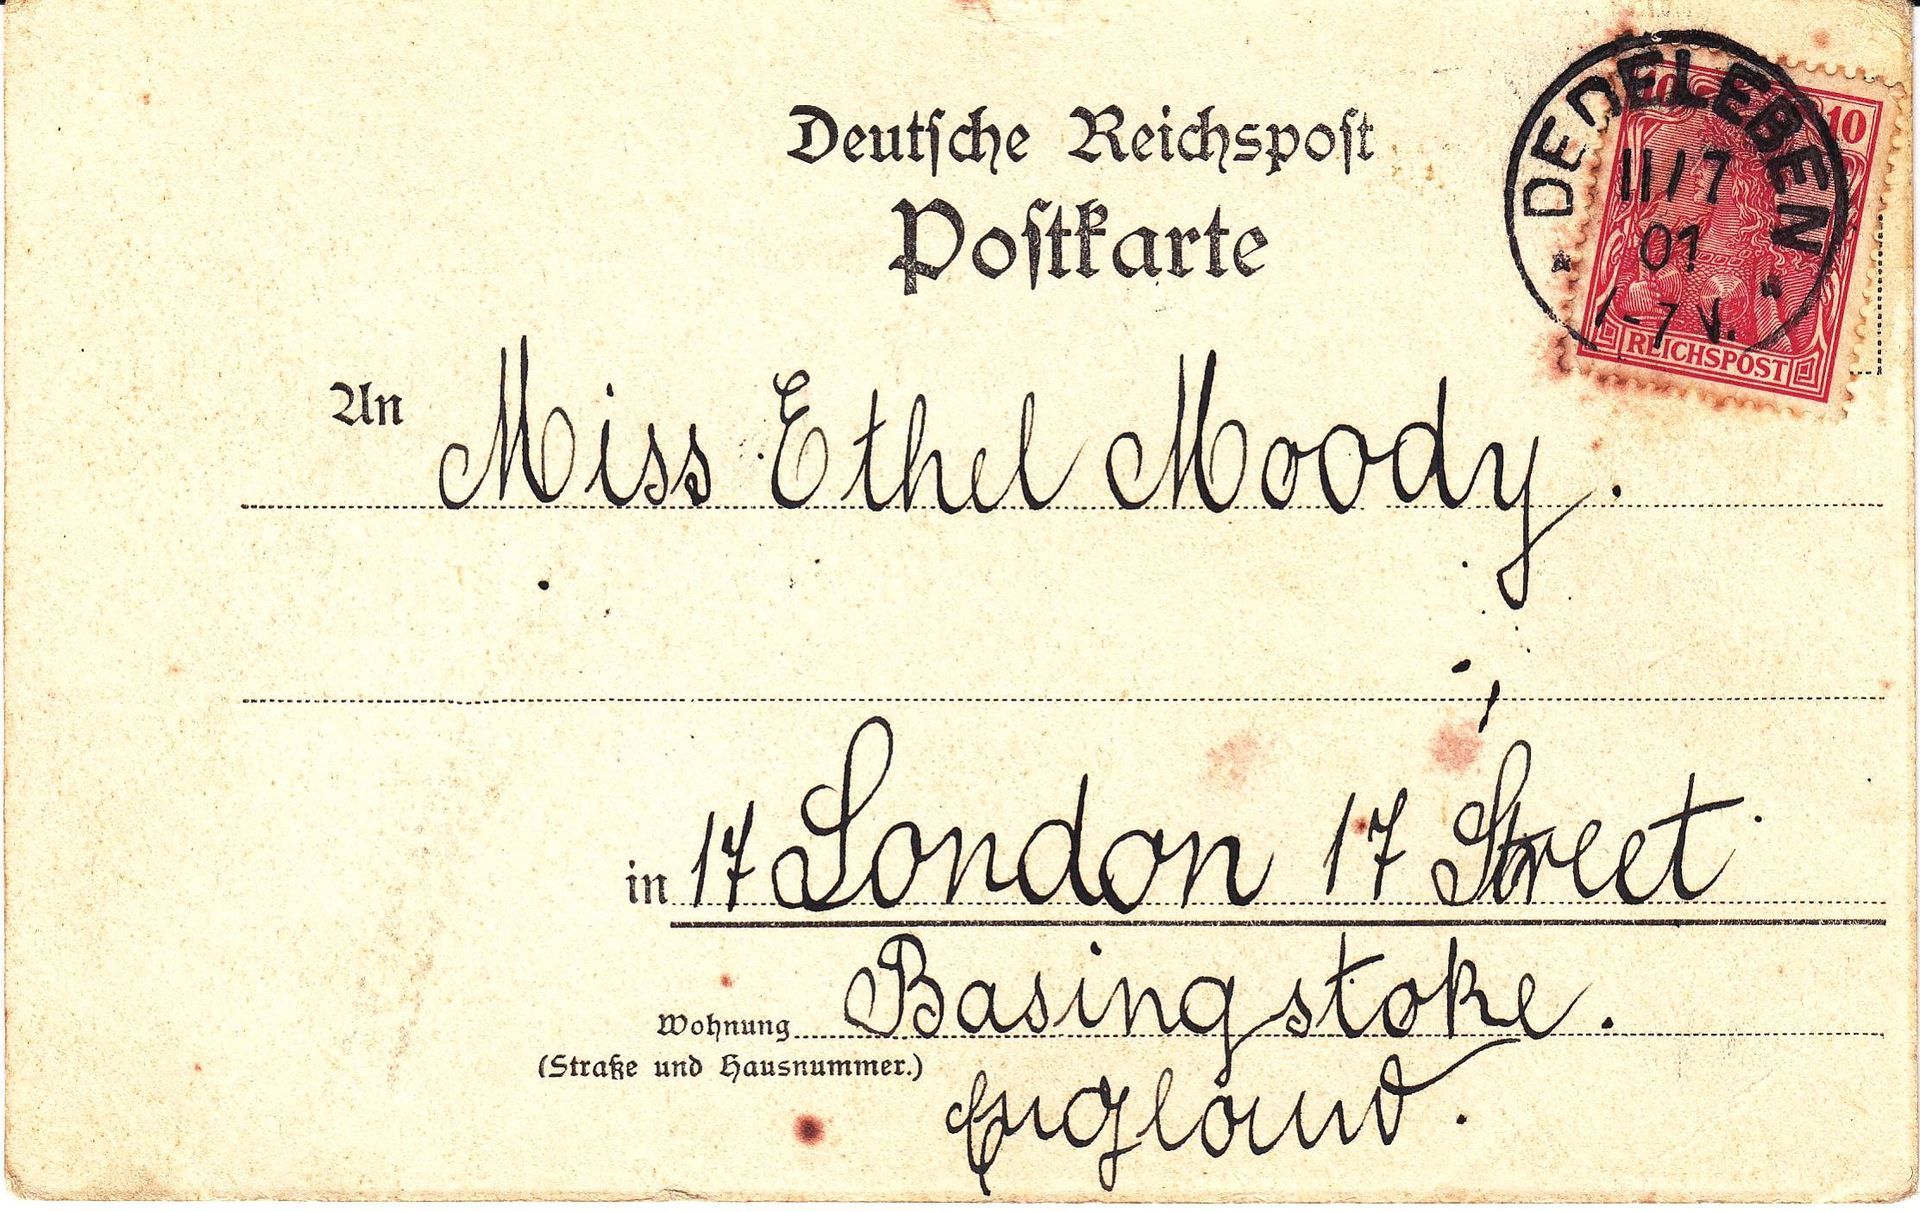 Deutsche Reichspost
Postkarte
DEDELEBEN
11/7
01
-7 V.
10 10
REICHSPOST
An Miss Ethel Moody.
in 17 London 17 Street
Basingstoke.
Wohnung
(Straße und Hausnummer.)
England.